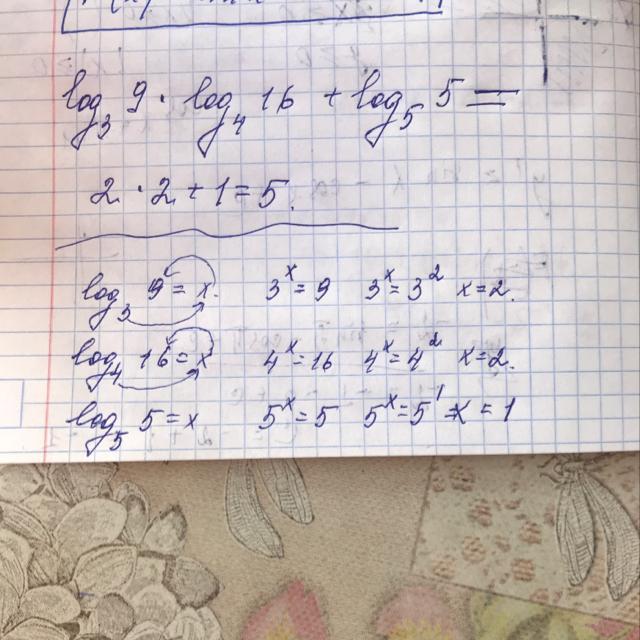 log₃ 9 · log₄ 16 + log₅ 5 =
2 · 2 + 1 = 5.
log₃ 9 = x. 3ˣ = 9 3ˣ = 3² x = 2.
log₄ 16 = x 4ˣ = 16 4ˣ = 4² x = 2.
log₅ 5 = x 5ˣ = 5 5ˣ = 5¹ x = 1